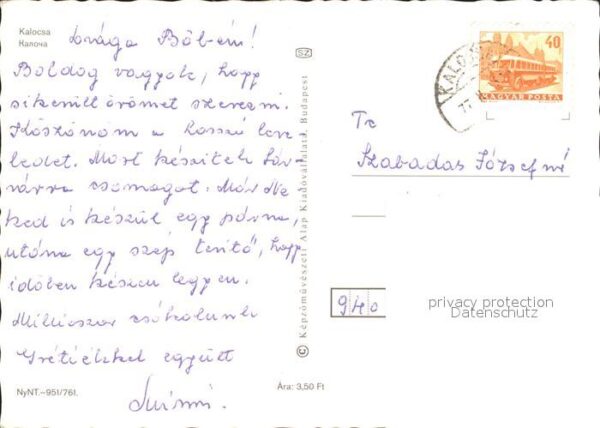 Kalocsa
Калоча
Drága Böbém!
Boldog vagyok, hogy
sikerült örömet szerezni.
Köszönöm a hosszú leve
ledet. Most készitek Sár
várra csomagot. Már Ne
ked is készül egy párna,
utána egy szép terítő, hogy
időben készen legyen.
Milliószor csókolunk
Grétiékkel együtt
NyNT.–951/761.
Ára: 3,50 Ft
SZ
© Képzőművészeti Alap Kiadóvállalata, Budapest
40
MAGYAR POSTA
KALO
77
Szabadas Józsefné
940
privacy protection
Datenschutz